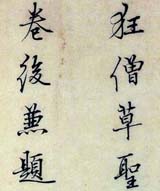 狂僧草聖
卷後兼題